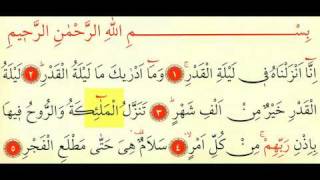 بِسْمِ اللهِ الرَّحْمٰنِ الرَّحٖيمِ
اِنَّٓا اَنْزَلْنَاهُ فٖى لَيْلَةِ الْقَدْرِۚ ١ وَمَٓا اَدْرٰيكَ مَا لَيْلَةُ الْقَدْرِۜ ٢ لَيْلَةُ
الْقَدْرِ خَيْرٌ مِنْ اَلْفِ شَهْرٍۜ ٣ تَنَزَّلُ الْمَلٰٓئِكَةُ وَالرُّوحُ فٖيهَا
بِاِذْنِ رَبِّهِمْۚ مِنْ كُلِّ اَمْرٍۙ ٤ سَلَامٌ۠ هِىَ حَتّٰى مَطْلَعِ الْفَجْرِ ٥